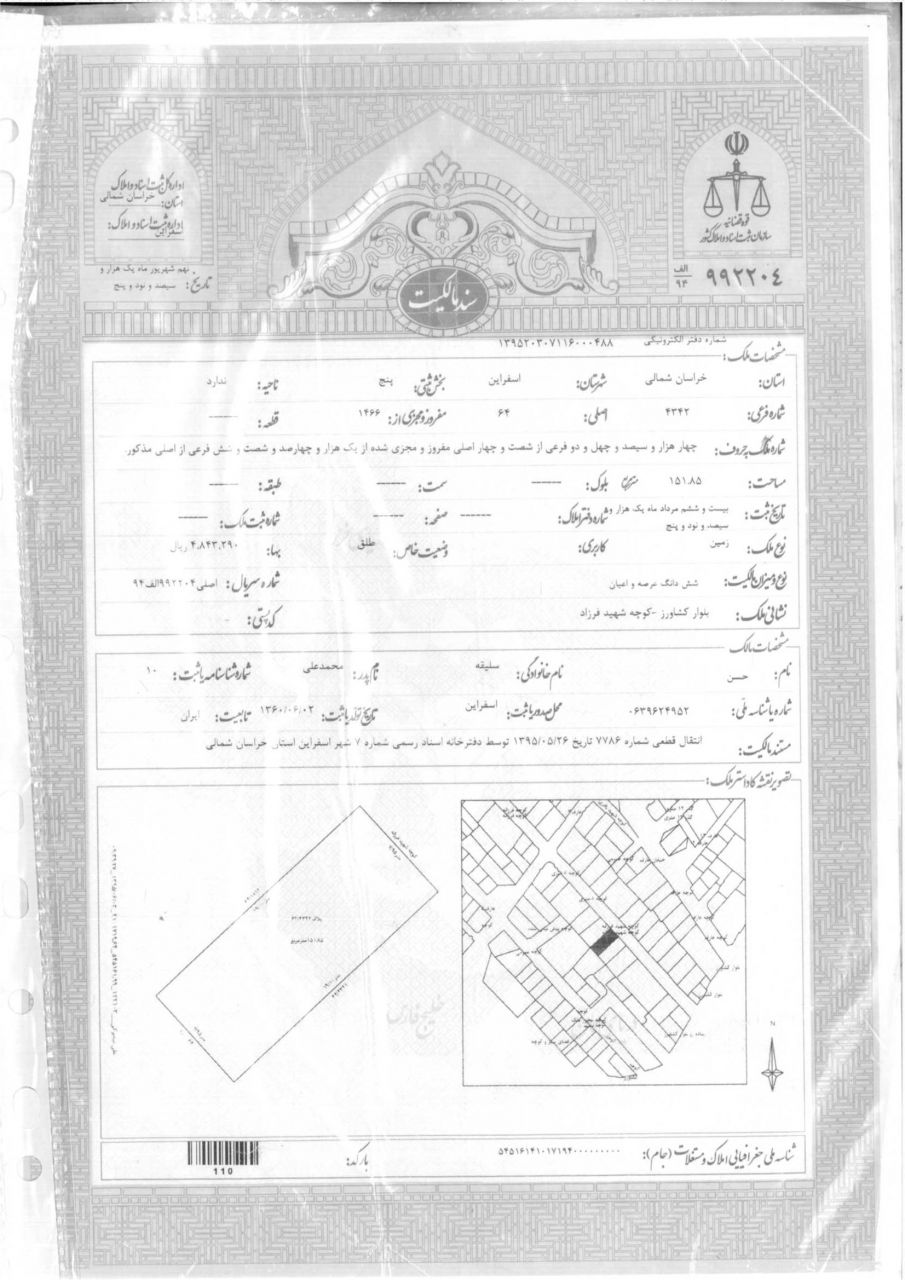 قوه قضائیه
سازمان ثبت اسناد و املاک کشور
الف
۹۴
۹۹۲۲۰۴
اداره کل ثبت اسناد و املاک
استان: خراسان شمالی
اداره ثبت اسناد و املاک:
اسفراین
تاریخ: نهم شهریور ماه یک هزار و
سیصد و نود و پنج
سند مالکیت
شماره دفتر الکترونیکی ۱۳۹۵۲۰۳۰۷۱۱۶۰۰۰۴۸۸
مشخصات ملک:
استان: خراسان شمالی شهرستان: اسفراین بخش ثبتی: پنج ناحیه: ندارد
شماره فرعی: ۴۳۴۲ اصلی: ۶۴ مفروز و مجزی از: ۱۴۶۶ قطعه: -----
شماره ملک بحروف: چهار هزار و سیصد و چهل و دو فرعی از شصت و چهار اصلی مفروز و مجزی شده از یک هزار و چهارصد و شصت و شش فرعی از اصلی مذکور.
مساحت: ۱۵۱.۸۵ مترمربع بلوک: ----- سمت: ----- طبقه: -----
تاریخ ثبت: بیست و ششم مرداد ماه یک هزار و سیصد و نود و پنج شماره دفتر املاک: ----- صفحه: ----- شماره ثبت ملک: -----
نوع ملک: زمین کاربری: وضعیت خاص: طلق بها: ۴,۸۴۳,۲۹۰ ریال
نوع و میزان مالکیت: شش دانگ عرصه و اعیان شماره سریال: اصلی ۹۹۲۲۰۴الف۹۴
نشانی ملک: بلوار کشاورز -کوچه شهید فرزاد کدپستی: -
مشخصات مالک
نام: حسن نام خانوادگی: سلیقه نام پدر: محمدعلی شماره شناسنامه یا ثبت: ۱۰
شماره یا شناسه ملی: ۰۶۳۹۶۲۴۹۵۲ محل صدور یا ثبت: اسفراین تاریخ تولد یا ثبت: ۱۳۶۰/۰۶/۰۲ تابعیت: ایران
مستند مالکیت: انتقال قطعی شماره ۷۷۸۶ تاریخ ۱۳۹۵/۰۵/۲۶ توسط دفترخانه اسناد رسمی شماره ۷ شهر اسفراین استان خراسان شمالی
تصویر نقشه کاداستر ملک:
N
خلیج فارس
شناسه ملی جغرافیایی املاک و مستغلات (جام): ۵۴۵۱۶۱۴۱۰۱۷۱۹۴۰۰۰۰۰۰۰۰۰
بارکد:
110